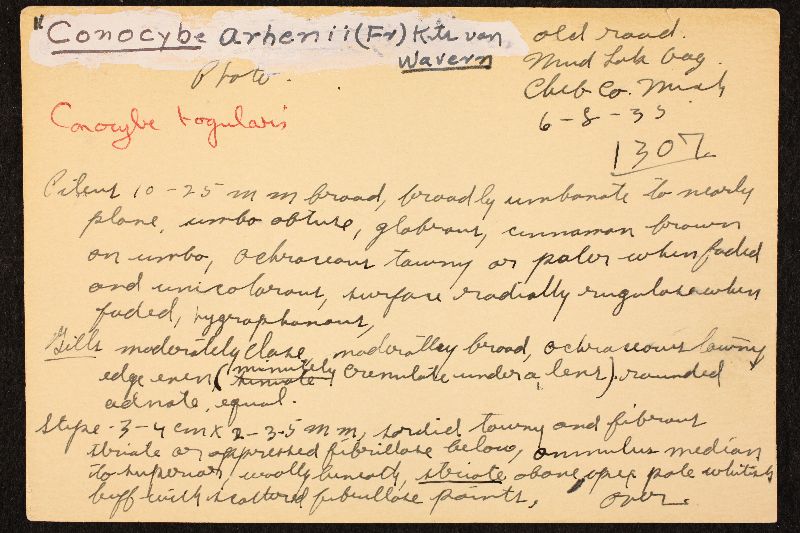 "Conocybe arhenii (Fr) Kits van Wavern
Photo.
old road.
Mud Lake bog.
Cheb Co. Mich
6-8-35
1307
Conocybe togularis
Pileus 10-25 mm broad, broadly umbonate to nearly
plane, umbo obtuse, glabrous, cinnamon brown
on umbo, ochraceous tawny or paler when faded
and unicolorous, surface radially rugulose when
faded, hygrophanous,
Gills moderately close moderatley broad, ochraceous tawny
edge even (minutely crenulate under a lens). rounded
adnate, equal.
Stipe 3-4 cm x 2-3.5 mm, sordid tawny and fibrous
striate or appressed fibrillose below, annulus median
to superior, woolly beneath, striate above, apex pale whitish
buff with scattered fibrillose points, over.